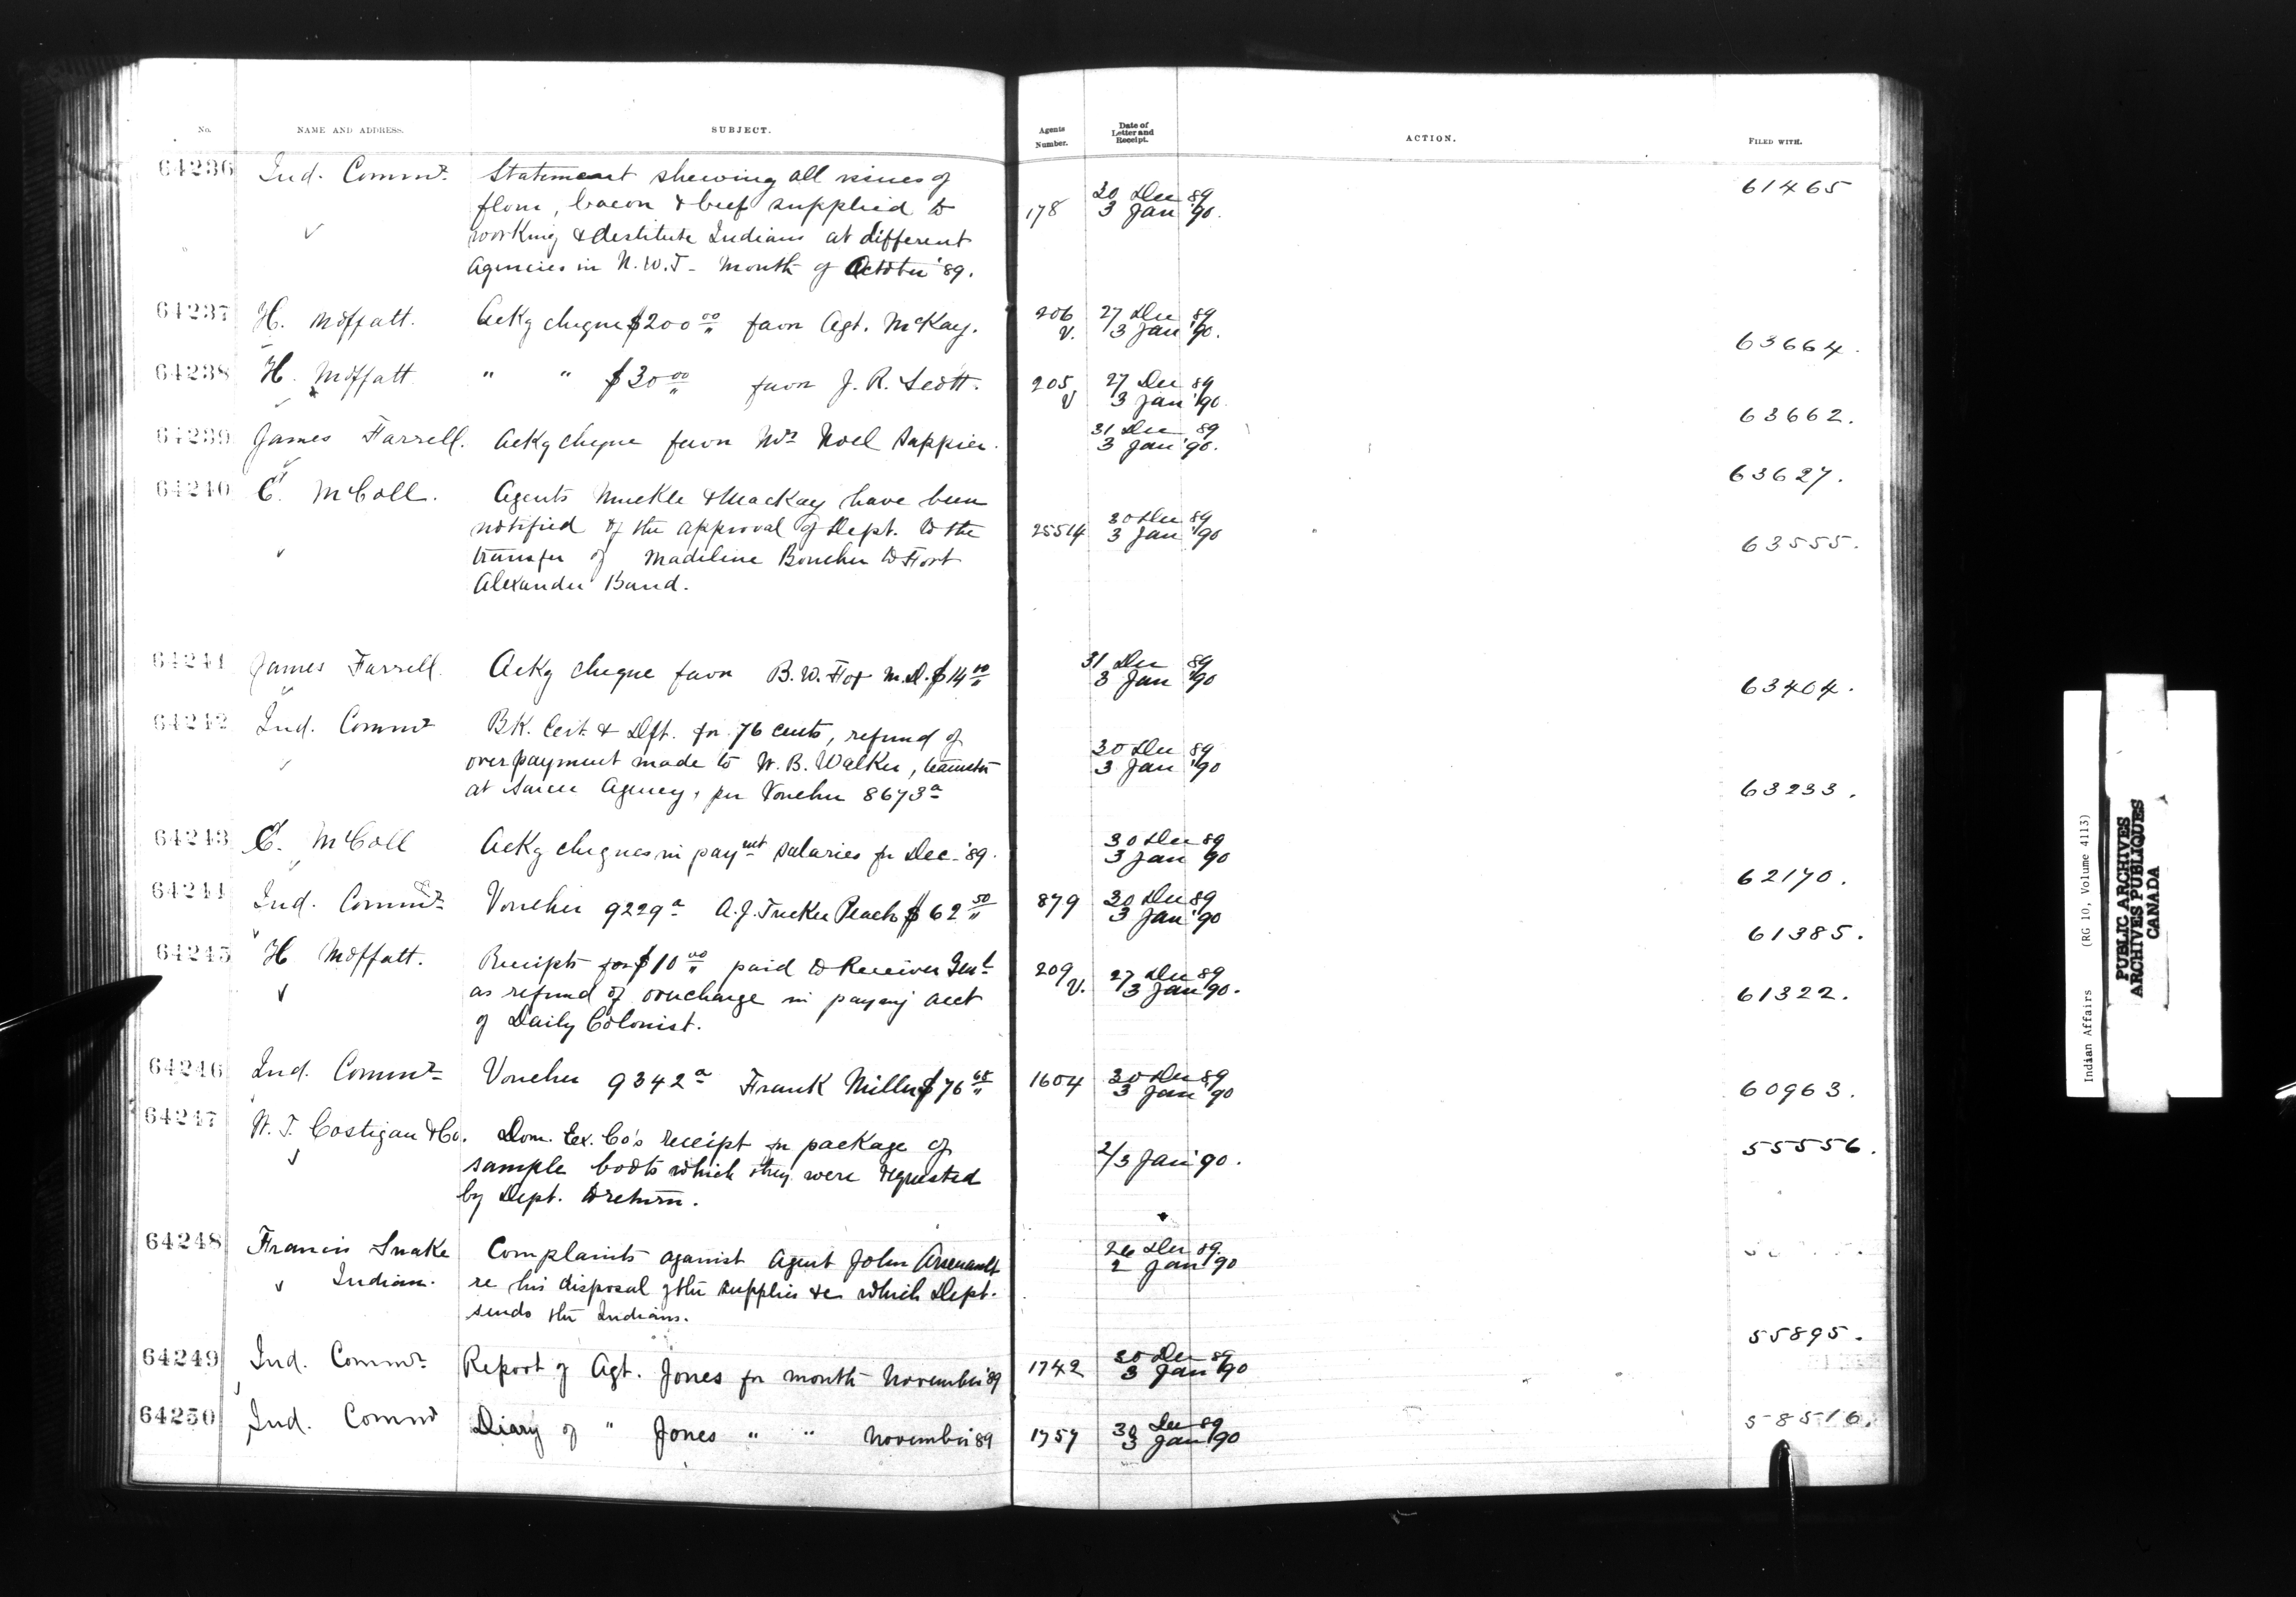 No. NAME AND ADDRESS. SUBJECT. Agents Number. Date of Letter and Receipt. ACTION. FILED WITH.
64236 Ind. Commr. Statement shewing all issues of
flour, bacon & beef supplied to 178 30 Dec 89 3 Jan '90. 61465
working & destitute Indians at different
Agencies in N.W.T - Month of October '89.
64237 H. Moffatt. Ackg cheque $200 00 favor Agt. McKay. 206 V. 27 Dec 89 3 Jan '90. 63664.
64238 H. Moffatt " " $30 00 favor J. R. Scott. 205 V 27 Dec 89 3 Jan '90. 63662.
64239 James Farrell. Ackg cheque favor Mrs Noel Sappier. 31 Dec 89 3 Jan '90. 63627.
64240 E. McColl. Agents Muckle & MacKay have been
notified of the approval of Dept. to the 25514 30 Dec 89 3 Jan '90 63555.
transfer of Madeline Boucher to Fort
Alexander Band.
64241 James Farrell. Ackg cheque favor B. W. Foy M.D. $14 00 31 Dec 89 3 Jan '90 63404.
64242 Ind. Commr BK. Cert. & Dft. for 76 cents, refund of
overpayment made to W. B. Walker, teamster 30 Dec 89 3 Jan '90
at Sarcee Agency, per Voucher 8673 a 63233.
64243 E. McColl Ackg cheques in payent salaries for Dec. '89. 30 Dec 89 3 Jan 90 62170.
64244 Ind. Commr. Voucher 9229 a A. J. Tucker Peach $62 50 879 30 Dec 89 3 Jan '90 61385.
64245 H Moffatt. Receipts for $10 00 paid to Receiver Genl 209 V. 27 Dec 89 3 Jan '90.
as refund of overcharge in paying acct 61322.
of Daily Colonist.
64246 Ind. Commr. Voucher 9342 a Frank Miller $76 65 1604 30 Dec 89 3 Jan '90 60963.
64247 W. J. Costigan & Co. Dom. Ex. Co's receipt for package of
sample boots which they were requested 2/3 Jan '90. 55556.
by Dept. to return.
64248 Francis Snake Complaints against Agent John Arsenault 26 Dec 89. 2 Jan '90
Indian. re his disposal of the supplies &c which Dept.
sends the Indians. 55895.
64249 Ind. Commr. Report of Agt. Jones for month November '89 1742 30 Dec 89 3 Jan '90
64250 Ind. Commr Diary of " Jones " " November 89 1757 30 Dec 89 3 Jan '90 58516.
Indian Affairs (RG 10, Volume 4113)
PUBLIC ARCHIVES
ARCHIVES PUBLIQUES
CANADA